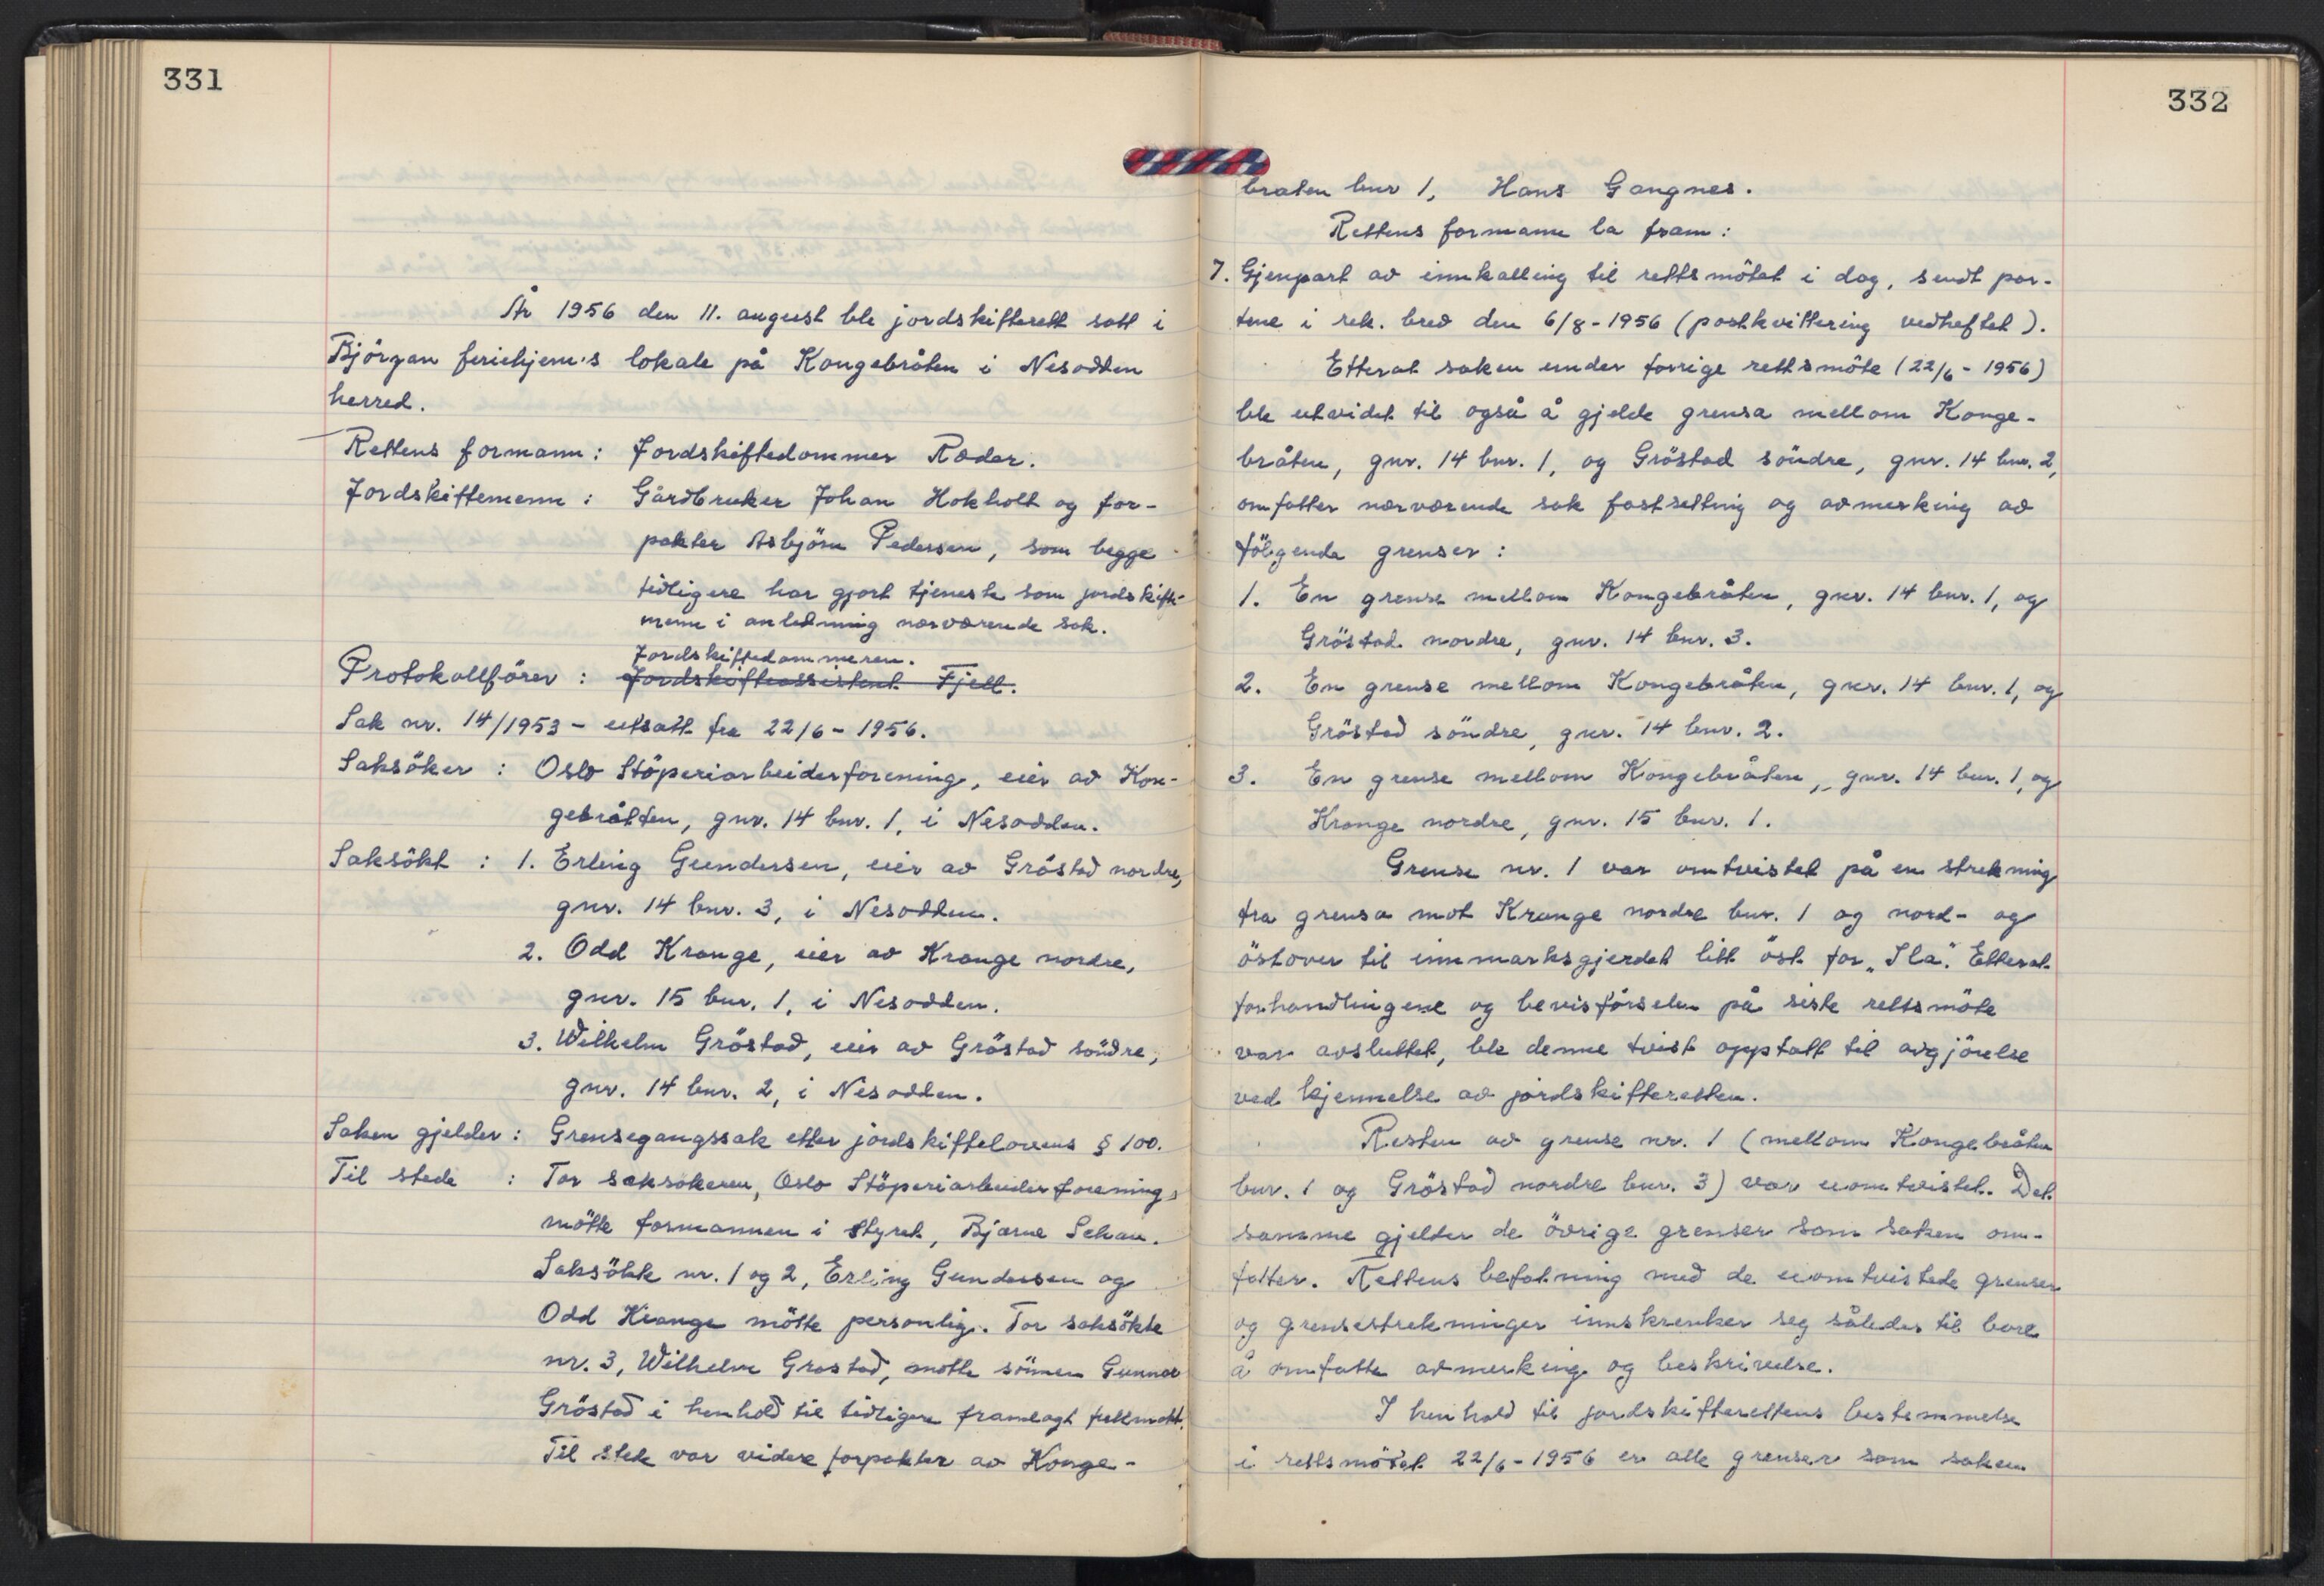 331
År 1956 den 11. august ble jordskifterett satt i
Björgan feriehjem's lokale på Kongebråten i Nesodden
herred.
Rettens formann: Jordskiftedommer Röder.
Jordskiftemenn: Gårdbruker Johan Hokholt og for-
pakter Asbjörn Pedersen, som begge
tidligere har gjort tjeneste som jordskifte-
menn i anledning nærværende sak.
Jordskiftedommeren.
Protokollförer: Jordskifteassistent Fjell.
Sak nr. 14/1953 - utsatt fra 22/6 - 1956.
Saksöker: Oslo Stöperiarbeiderforening, eier av Kon-
gebråtten, gnr. 14 bnr. 1, i Nesodden.
Saksökt: 1. Erling Gundersen, eier av Gröstad nordre,
gnr. 14 bnr. 3, i Nesodden.
2. Odd Krange, eier av Krange nordre,
gnr. 15 bnr. 1, i Nesodden.
3. Wilhelm Gröstad, eier av Gröstad söndre,
gnr. 14 bnr. 2, i Nesodden.
Saken gjelder: Grensegangssak etter jordskiftelovens § 100.
Til stede: For saksökeren, Oslo Stöperiarbeiderforening,
mötte formannen i styret, Bjarne Schau.
Saksökk nr. 1 og 2, Erling Gundersen og
Odd Krange mötte personlig. For saksökte
nr. 3, Wilhelm Grostad, motte sönnen Gunnar
Gröstad i henhold til tidligere framlagt fullmakt.
Til stede var videre forpakter av Konge-
332
braten bnr 1, Hans Gangnes.
Rettens formann la fram:
7. Gjenpart av innkalling til rettsmötet i dag, sendt par-
tene i rek. brev den 6/8 - 1956 (postkvittering vedheftet).
Etterat saken under forrige rettsmöte (22/6 - 1956)
ble utvidet til også å gjelde grensa mellom Konge-
bråten, gnr. 14 bnr. 1, og Gröstad söndre, gnr. 14 bnr. 2,
omfatter nærværende sak fastsetting og avmerking av
fölgende grenser:
1. En grense mellom Kongebråten, gnr. 14 bnr. 1, og
Gröstad nordre, gnr. 14 bnr. 3.
2. En grense mellom Kongebråten, gnr. 14 bnr. 1, og
Gröstad söndre, gnr. 14 bnr. 2.
3. En grense mellom Kongebråten, gnr. 14 bnr. 1, og
Krange nordre, gnr. 15 bnr. 1.
Grense nr. 1 var omtvistet på en strekning
fra grensa mot Krange nordre bnr. 1 og nord- og
östover til innmarksgjerdet litt öst for "Ila". Etterat
forhandlingene og bevisförselen på siste rettsmöte
var avsluttet, ble denne tvist opptatt til avgjörelse
ved kjennelse av jordskifteretten.
Resten av grense nr. 1 (mellom Kongebråten
bnr. 1 og Gröstad nordre bnr. 3) var uomtvistet. Det
samme gjelder de övrige grenser som saken om-
fatter. Rettens befatning med de uomtvistede grenser
og grensestrekninger innskrenker seg således til bare
å omfatte avmerking og beskrivelse.
I henhold til jordskifterettens bestemmelse
i rettsmötet 22/6 - 1956 er alle grenser som saken